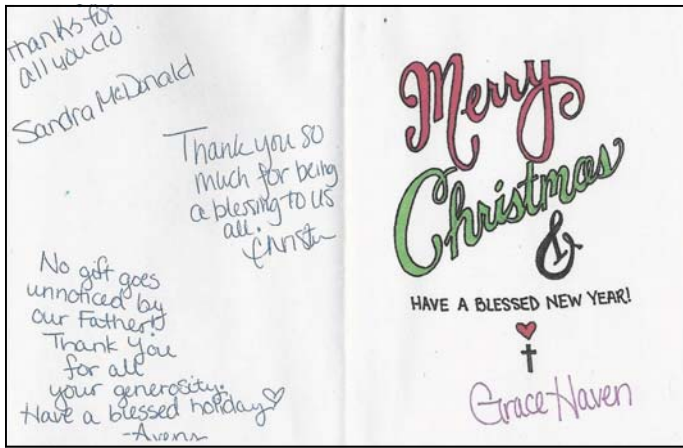 Thanks for
all you do
Sandra McDonald
Thank you so
much for being
a blessing to us
all.
No gift goes
unnoticed by
our Father!
Thank you
for all
your generosity.
Have a blessed holiday
Merry
Christmas
&
HAVE A BLESSED NEW YEAR!
Grace Haven